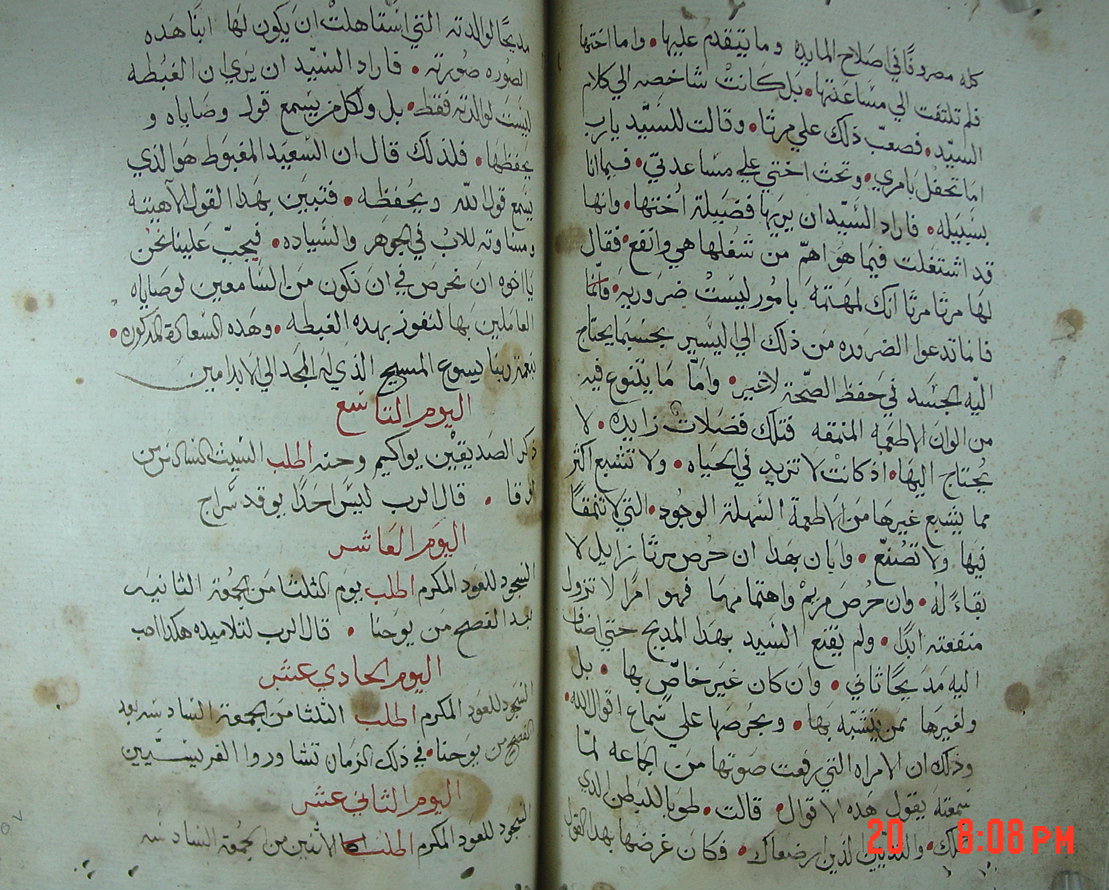 كله مصروفًا في اصلاح المايده وما يتقدم عليها • واما اختها
فلم تلتفت الي مساعدتها • بل كانت شاخصه الي كلام
السيّد • فصعب ذلك علي مرثا • وقالت للسيّد يارب
اما تحفل بامري • وتحث اختي علي مساعدتي • فيما انا
بسبيله • فاراد السيّد ان يريها فضيلة اختها • وانها
قد اشتغلت فيما هو اهمّ من شغلها هي وانفع • فقال
لها مرثا مرثا انك لمهتمة بامور ليست ضروريه •
فانما تدعوا الضروره من ذلك الي اليسير بحسبما يحتاج
اليه الجسد في حفظ الصحّة لا غير • وامّا ما يتنوع فيه
من الوان الاطعمه المنمقه فتلك فضلات زايده • لا
يُحتاج اليها • اذ كانت لا تزيد في الحياه • ولا تشبع اكثر
مما يشبع غيرها من الاطعمة السهلة الوجود • التي لا تنمقًا
فيها ولا تصنّع • وابان بهذا ان حرص مرثا زايل لا
بقاءً له • وان حرص مريم واهتمامها فهو امرًا لا تزول
منفعته ابدًا • ولم يقنع السيد بهذا المديح حتي اضاف
اليه مديحًا ثاني • وان كان غير خاصّ بها • بل
ولغيرها ممن يتشبه بها • ويحرصها علي سماع اقوال الله •
وذلك ان الامراه التي رفعت صوتها من الجماعه لمّا
سمعته يقول هذه الاقوال • قالت • طوبا للبطن الذي
حملك • والثديين الذين ارضعاك • فكان غرضها بهذا القول
مديحًا لوالدته التي استاهلت ان يكون لها ابنًا هذه
الصوره صورته • فاراد السيّد ان يري ان الغبطه
ليست لوالدته فقط • بل ولكل من يسمع قوله وصاياه و
يحفظها • فلذلك قال ان السعيد المغبوط هو الذي
يسمع قول الله ويحفظه • فتبين بهذا القول لاهيته
ومساوته للاب في الجوهر والسياده • فيجب علينا نحن
يا اخوه ان نحرص في ان نكون من السامعين لوصاياه
العاملين بها لنفوز بهذه الغبطه • وهذه السعادة المذكوره •
بنعمة ربنا يسوع المسيح الذي له المجد الي الابد امين
اليوم التاسع
ذكر الصديقين يواكيم وحنه اطلب السبت السادس من
لوقا • قال الرب ليس احدًا يوقد سراج
اليوم العاشر
السجود للعود المكرم اطلب يوم الثلثا من الجمعة الثانيه
بعد الفصح من يوحنا • قال الرب لتلاميذه هكذا احب
اليوم الحادي عشر
السجود للعود المكرم اطلب الثلثا من الجمعة السادسه بعد
الفصح من يوحنا • في ذلك الزمان تشاوروا الفريسيين
اليوم الثاني عشر
السجود للعود المكرم اطلب الاثنين من الجمعة السادسه
20 8:08 PM